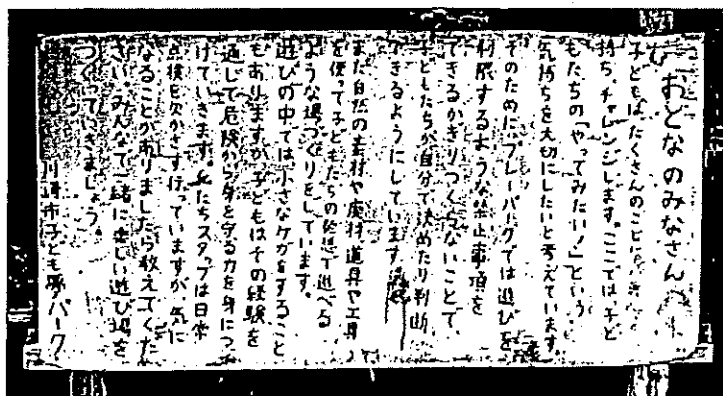 おとなのみなさんへ
子どもは、たくさんのことに
持ち、チャレンジします。ここでは、子ど
もたちの「やってみたい！」という
気持ちを大切にしたいと考えています。
そのためにプレーパークでは遊びを
制限するような禁止事項を
できるかぎりつくらないことで、
子どもたちが自分で決めたり判断
できるようにしています。
また自然の素材や廃材、道具や工具
を使って子どもたちの発想で遊べる
ような場づくりをしています。
遊びの中では小さなケガをすること
もありますが、子どもはその経験を
通して危険から身を守る力を身につ
けていきます。私たちスタッフは日常
点検を欠かさず行っていますが、気に
なることがありましたら教えてくだ
さい。みんなで一緒に楽しい遊び場を
つくっていきましょう。
川崎市子ども夢パーク